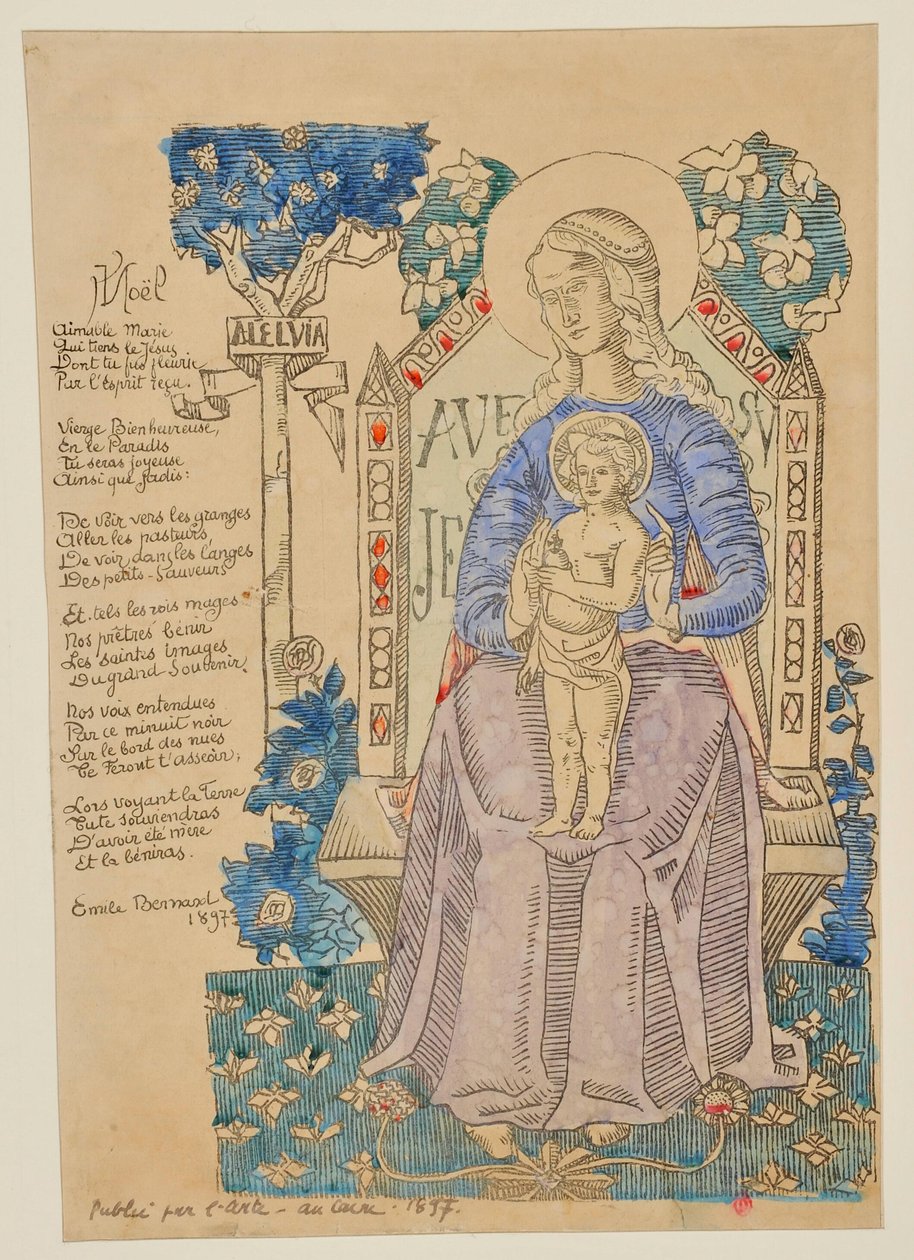 Noël
Aimable Marie
Qui tiens le Jésus
Dont tu fus fleurie
Par l'Esprit reçu.
Vierge Bienheureuse,
En le Paradis
Tu seras joyeuse
Ainsi que jadis:
De voir vers les granges
Aller les pasteurs,
De voir dans les langes
Des petits-Sauveurs
Et tels les rois mages
Nos prêtres bénir
Les saintes images
Du grand Souvenir,
Nos voix entendues
Par ce minuit noir
Sur le bord des nues
Te Feront t'asseoir;
Lors voyant la Terre
Tu te souviendras
D'avoir été mère
Et la béniras.
Emile Bernard
1897
ALELVIA
AVE SV
JE
Publié par l'Arte - au Caire. 1897.